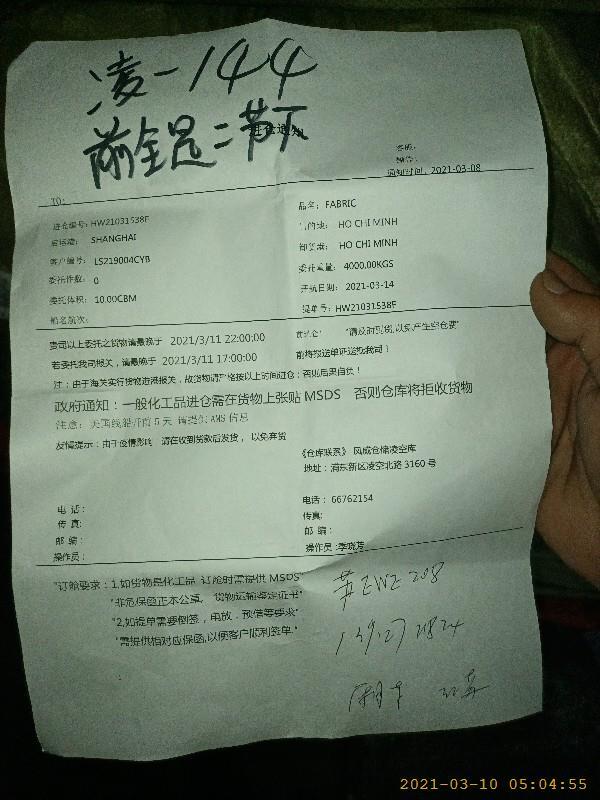 凌-144
前全是二节下
进仓通知
通知时间: 2021-03-08
TO:
进仓编号: HW21031538F
品名: FABRIC
启运港: SHANGHAI
目的地: HO CHI MINH
客户编号: LS219004CYB
卸货港: HO CHI MINH
委托件数: 0
委托重量: 4000.00KGS
委托体积: 10.00CBM
开航日期: 2021-03-14
船名航次:
提单号: HW21031538F
贵司以上委托之货物请最晚于 2021/3/11 22:00:00
"请及时到货,以免产生空仓费"
若委托我司报关,请最晚于 2021/3/11 17:00:00
前将报关单证送抵我司!
注:由于海关实行货物进港报关,故货物请严格按以上时间进仓;否则后果自负!
政府通知:一般化工品进仓需在货物上张贴 MSDS 否则仓库将拒收货物
注意: 美国线船开前 5 天 请提供 AMS 信息
友情提示:由于疫情影响 请在收到货款后发货,以免弃货
《仓库联系》 风威仓储凌空库
地址:浦东新区凌空北路 3160 号
电 话:
电话: 66762154
传 真:
传真:
邮 编:
邮 编:
操作员:
操作员:季晓芳
"订舱要求:1.如货物是化工品 订舱时需提供 MSDS"
"非危保函正本公章, 货物运输鉴定证书"
"2.如提单需要倒签,电放,预借等要求"
"需提供相对应保函,以便客户顺利签单."
2021-03-10 05:04:55